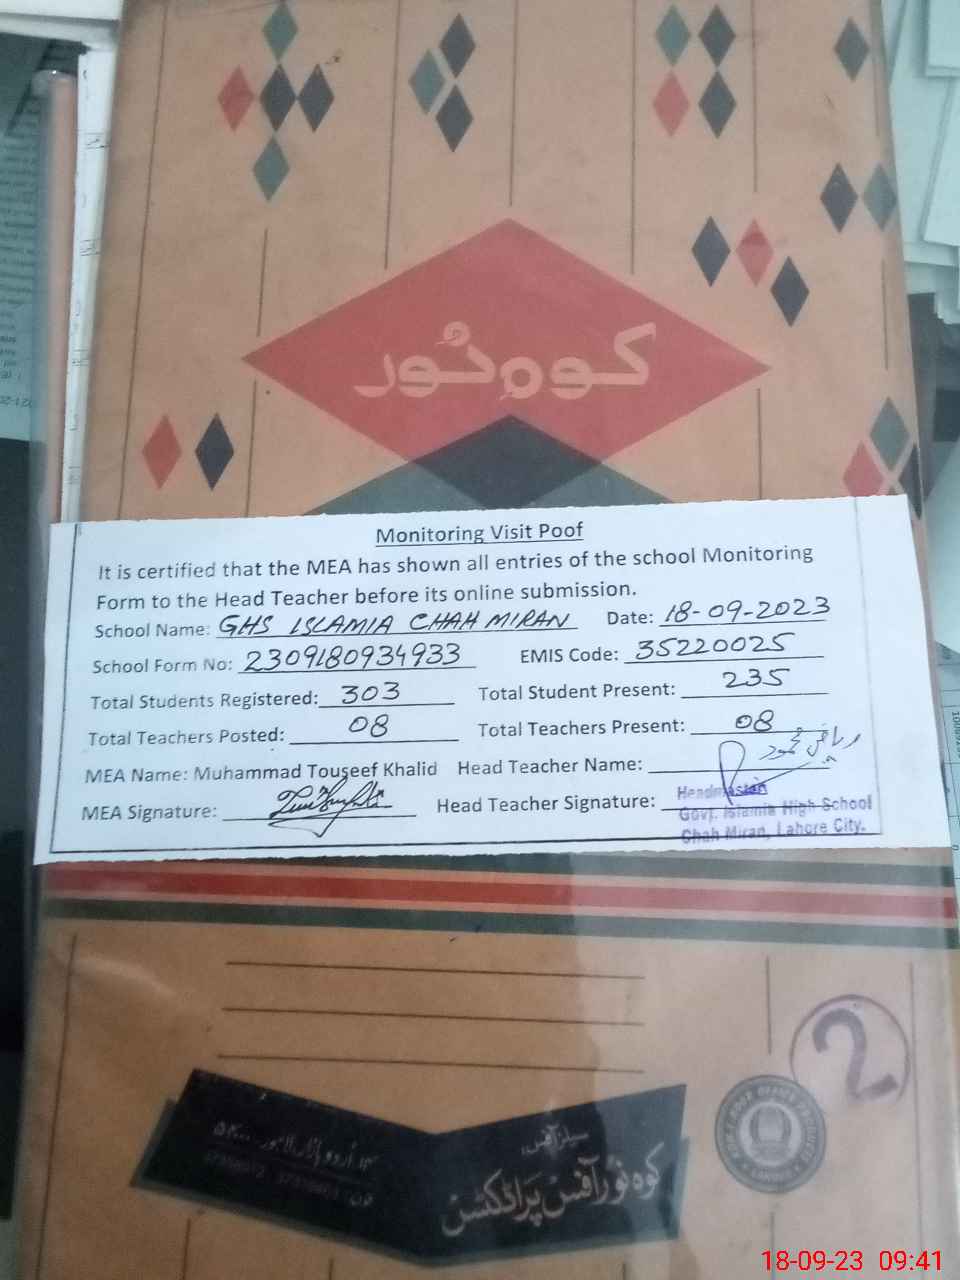 کوہ نور
Monitoring Visit Poof
It is certified that the MEA has shown all entries of the school Monitoring
Form to the Head Teacher before its online submission.
School Name: GHS ISLAMIA CHAH MIRAN Date: 18-09-2023
School Form No: 2309180934933 EMIS Code: 35220025
Total Students Registered: 303 Total Student Present: 235
Total Teachers Posted: 08 Total Teachers Present: 08
MEA Name: Muhammad Touseef Khalid Head Teacher Name:
MEA Signature: Head Teacher Signature:
Headmaster
Govt. Islamia High School
Chah Miran, Lahore City.
2
سیلز آفس:
کوہ نور آفس پراڈکٹس
18-09-23 09:41